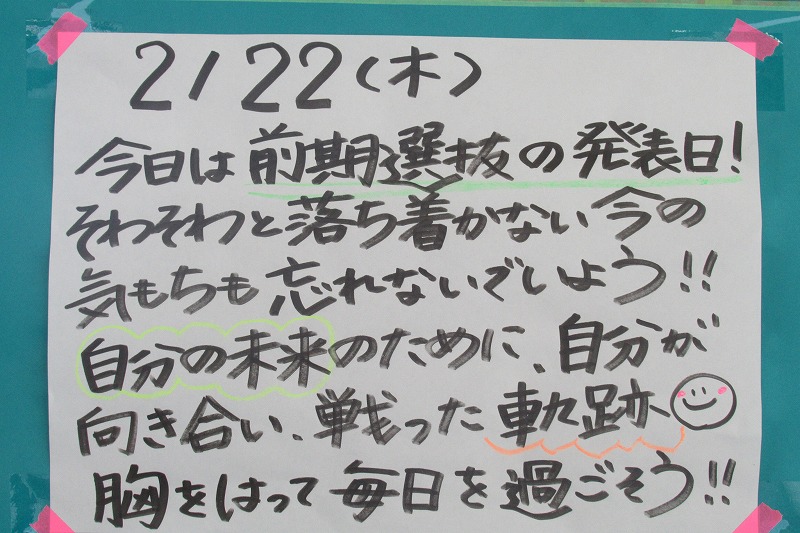 2/22(木)
今日は前期選抜の発表日!
そわそわと落ち着かない今の
気もちも忘れないでいよう!!
自分の未来のために、自分が
向き合い、戦った軌跡
胸をはって毎日を過ごそう!!